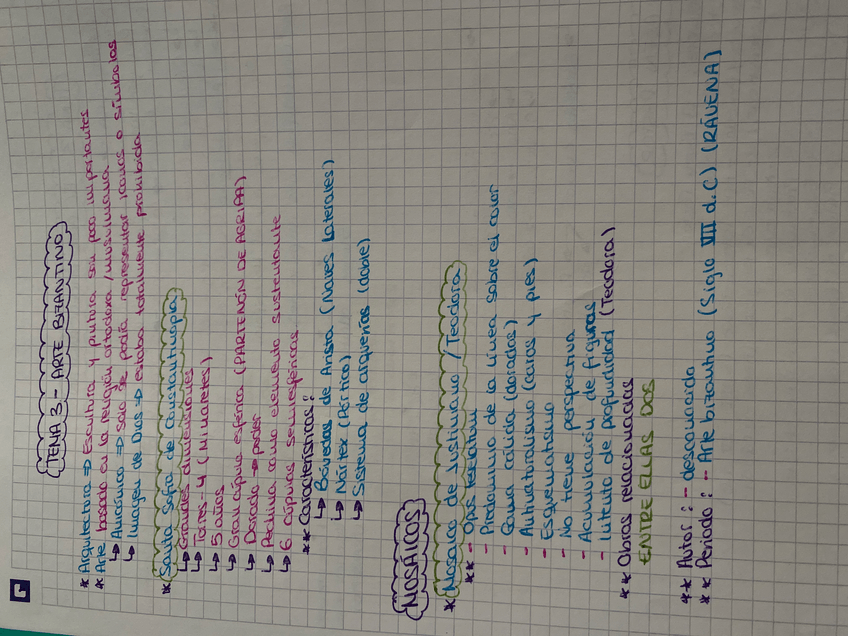 TEMA 3.- ARTE BIZANTINO
* Arquitectura => Escultura y pintura son poco importantes
* Arte basado en la religión ortodoxa / musulmana
↳ Anicónico => solo se podía representar iconos o símbolos
↳ Imagen de Dios => estaba totalmente prohibida
* Santa Sofía de Constantinopla
↳ Grandes dimensiones
↳ Torres - 4 (Minaretes)
↳ 5 años
↳ Gran cúpula esférica (PARTENÓN DE AGRIPA)
↳ Dorado => poder
↳ Pechina como elemento sustentante
↳ 6 cúpulas semiesféricas
** Características:
↳ Bóvedas de Arista (Naves Laterales)
↳ Nártex (Pórtico)
↳ Sistema de arquerías (doble)
MOSÁICOS
* Mosaico de Justiniano / Teodora
** - Opus
- Predominio de la línea sobre el color
- Gama cálida (dorados)
- Antinaturalismo (caras y pies)
- Esquematismo
- No tiene perspectiva
- Acumulación de figuras
- Intento de profundidad (Teodora)
** Obras relacionadas
ENTRE ELLAS DOS
** Autor: - desconocido
** Periodo: - Arte bizantino (Siglo VIII d.C) (RÁVENA)